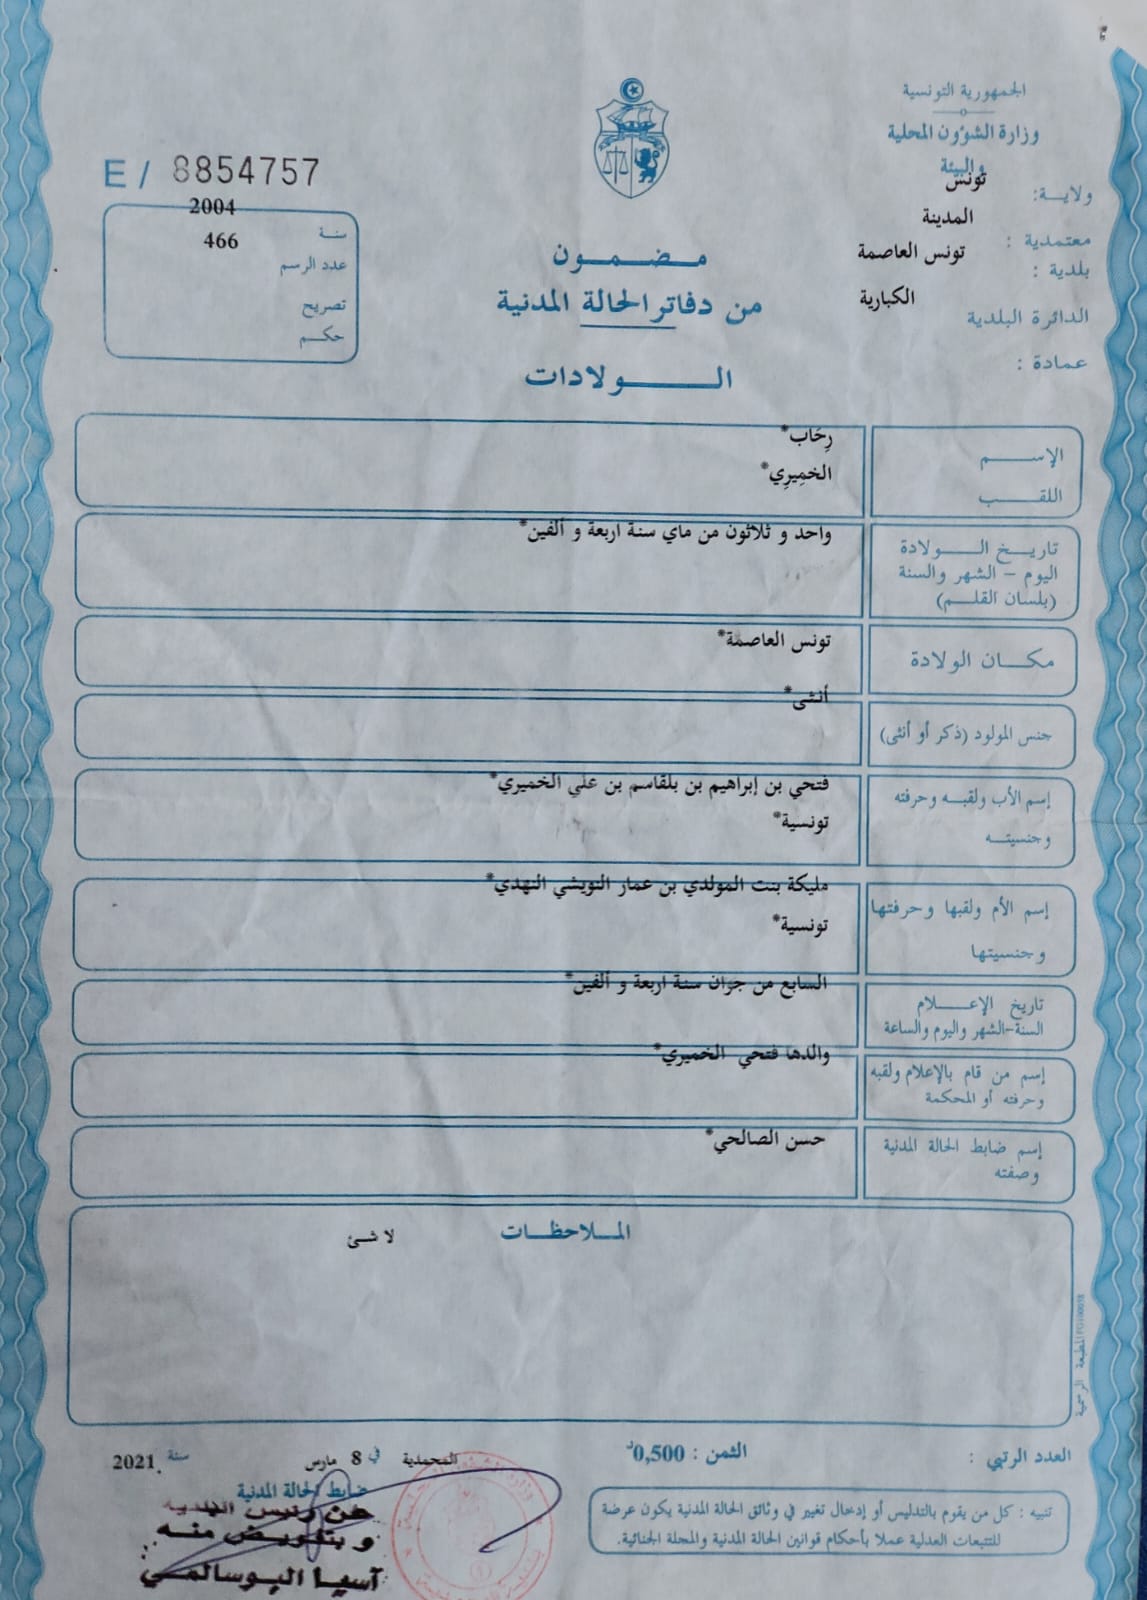 الجمهورية التونسية
وزارة الشؤون المحلية
والبيئة
ولاية: تونس
معتمدية : المدينة
بلدية : تونس العاصمة
الدائرة البلدية الكبارية
عمادة :
E / 8854757
سنة 2004
عدد الرسم 466
تصريح
حكم
مضمون
من دفاتر الحالة المدنية
الولادات
الإسم رِحَاب*
اللقب الخمِيرِي*
تاريخ الولادة واحد و ثلاثون من ماي سنة اربعة و ألفين*
اليوم - الشهر والسنة
(بلسان القلم)
مكان الولادة تونس العاصمة*
جنس المولود (ذكر أو أنثى) أنثى*
إسم الأب ولقبه وحرفته فتحي بن إبراهيم بن بلقاسم بن علي الخميري*
وجنسيته تونسية*
إسم الأم ولقبها وحرفتها مليكة بنت المولدي بن عمار النويشي النهدي*
وجنسيتها تونسية*
تاريخ الإعلام السابع من جوان سنة اربعة و ألفين*
السنة-الشهر واليوم والساعة
إسم من قام بالإعلام ولقبه والدها فتحي الخميري*
وحرفته أو المحكمة
إسم ضابط الحالة المدنية حسن الصالحي*
وصفته
الملاحظات
لا شئ
المطبعة الرسمية
العدد الرتبي :
الثمن : 0,500د
المحمدية في 8 مارس سنة 2021
ضابط الحالة المدنية
عن رئيس البلدية
و بتفويض منه
آسيا البوسالمي
تنبيه : كل من يقوم بالتدليس أو إدخال تغيير في وثائق الحالة المدنية يكون عرضة
للتتبعات العدلية عملا بأحكام قوانين الحالة المدنية والمجلة الجنائية.